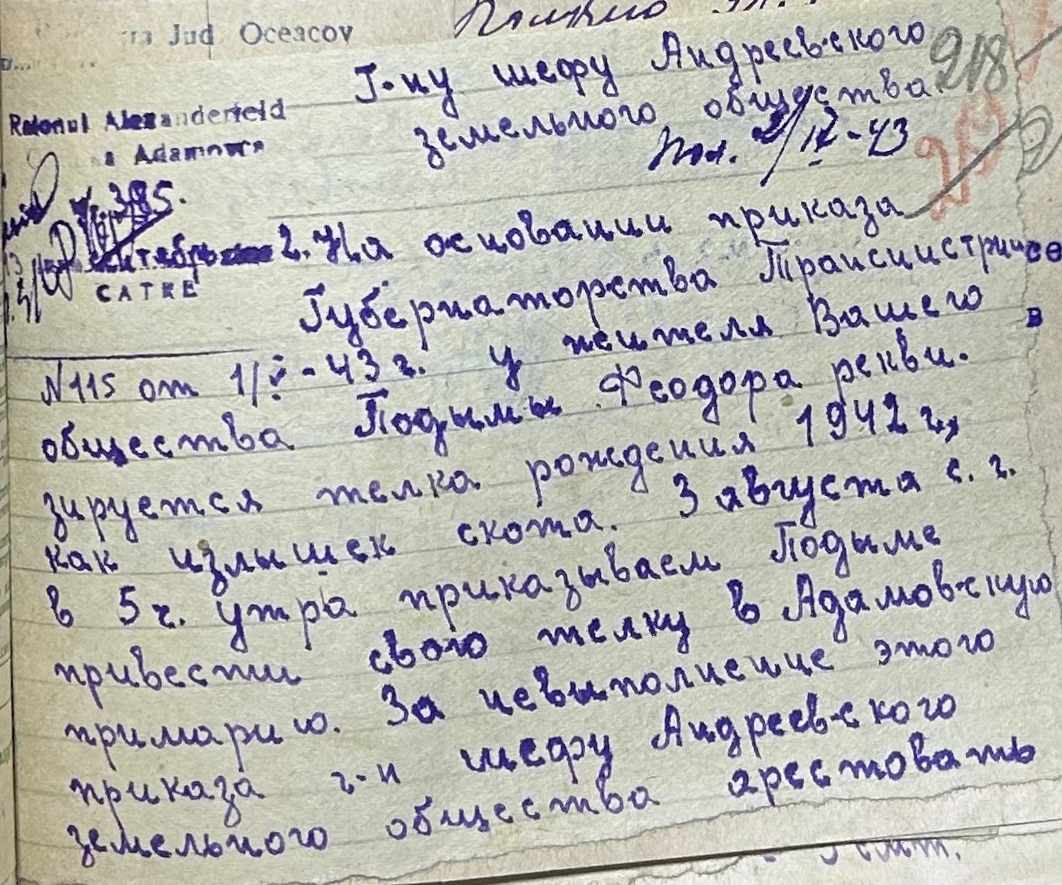 Jud Oceacov
Г-ну шефу Андреевского
земельного общества
218
Raionul Alexanderfeld
Adamowca
Пол. 2/IX-43
385.
2. На основании приказа
САТКЕ
Губернаторства Транснистрии
№115 от 1/V-43 г. у жителя Вашего
в
общества Подымы Феодора рекви-
зируется телка рождения 1942 г,
как излышек скота. 3 августа с. г.
в 5 ч. утра приказываем Подыме
привести свою телку в Адамовскую
примарию. За невыполнение этого
приказа г-н шефу Андреевского
земельного общества арестовать